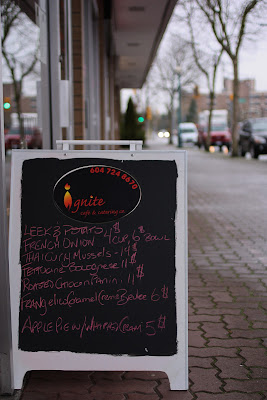 604 724 8670
ignite
cafe & catering co
LEEK & POTATO
FRENCH ONION 4 CUP, 6$ BOWL
THAI CURRY MUSSELS - 14$
FETTUCINE BOLOGNESE 11$
ROASTED CHICKEN PANINI 11$
FRANGELICO CARAMEL CREME BRULEE 6$
APPLE PIE W/ WHIPPED CREAM 5$